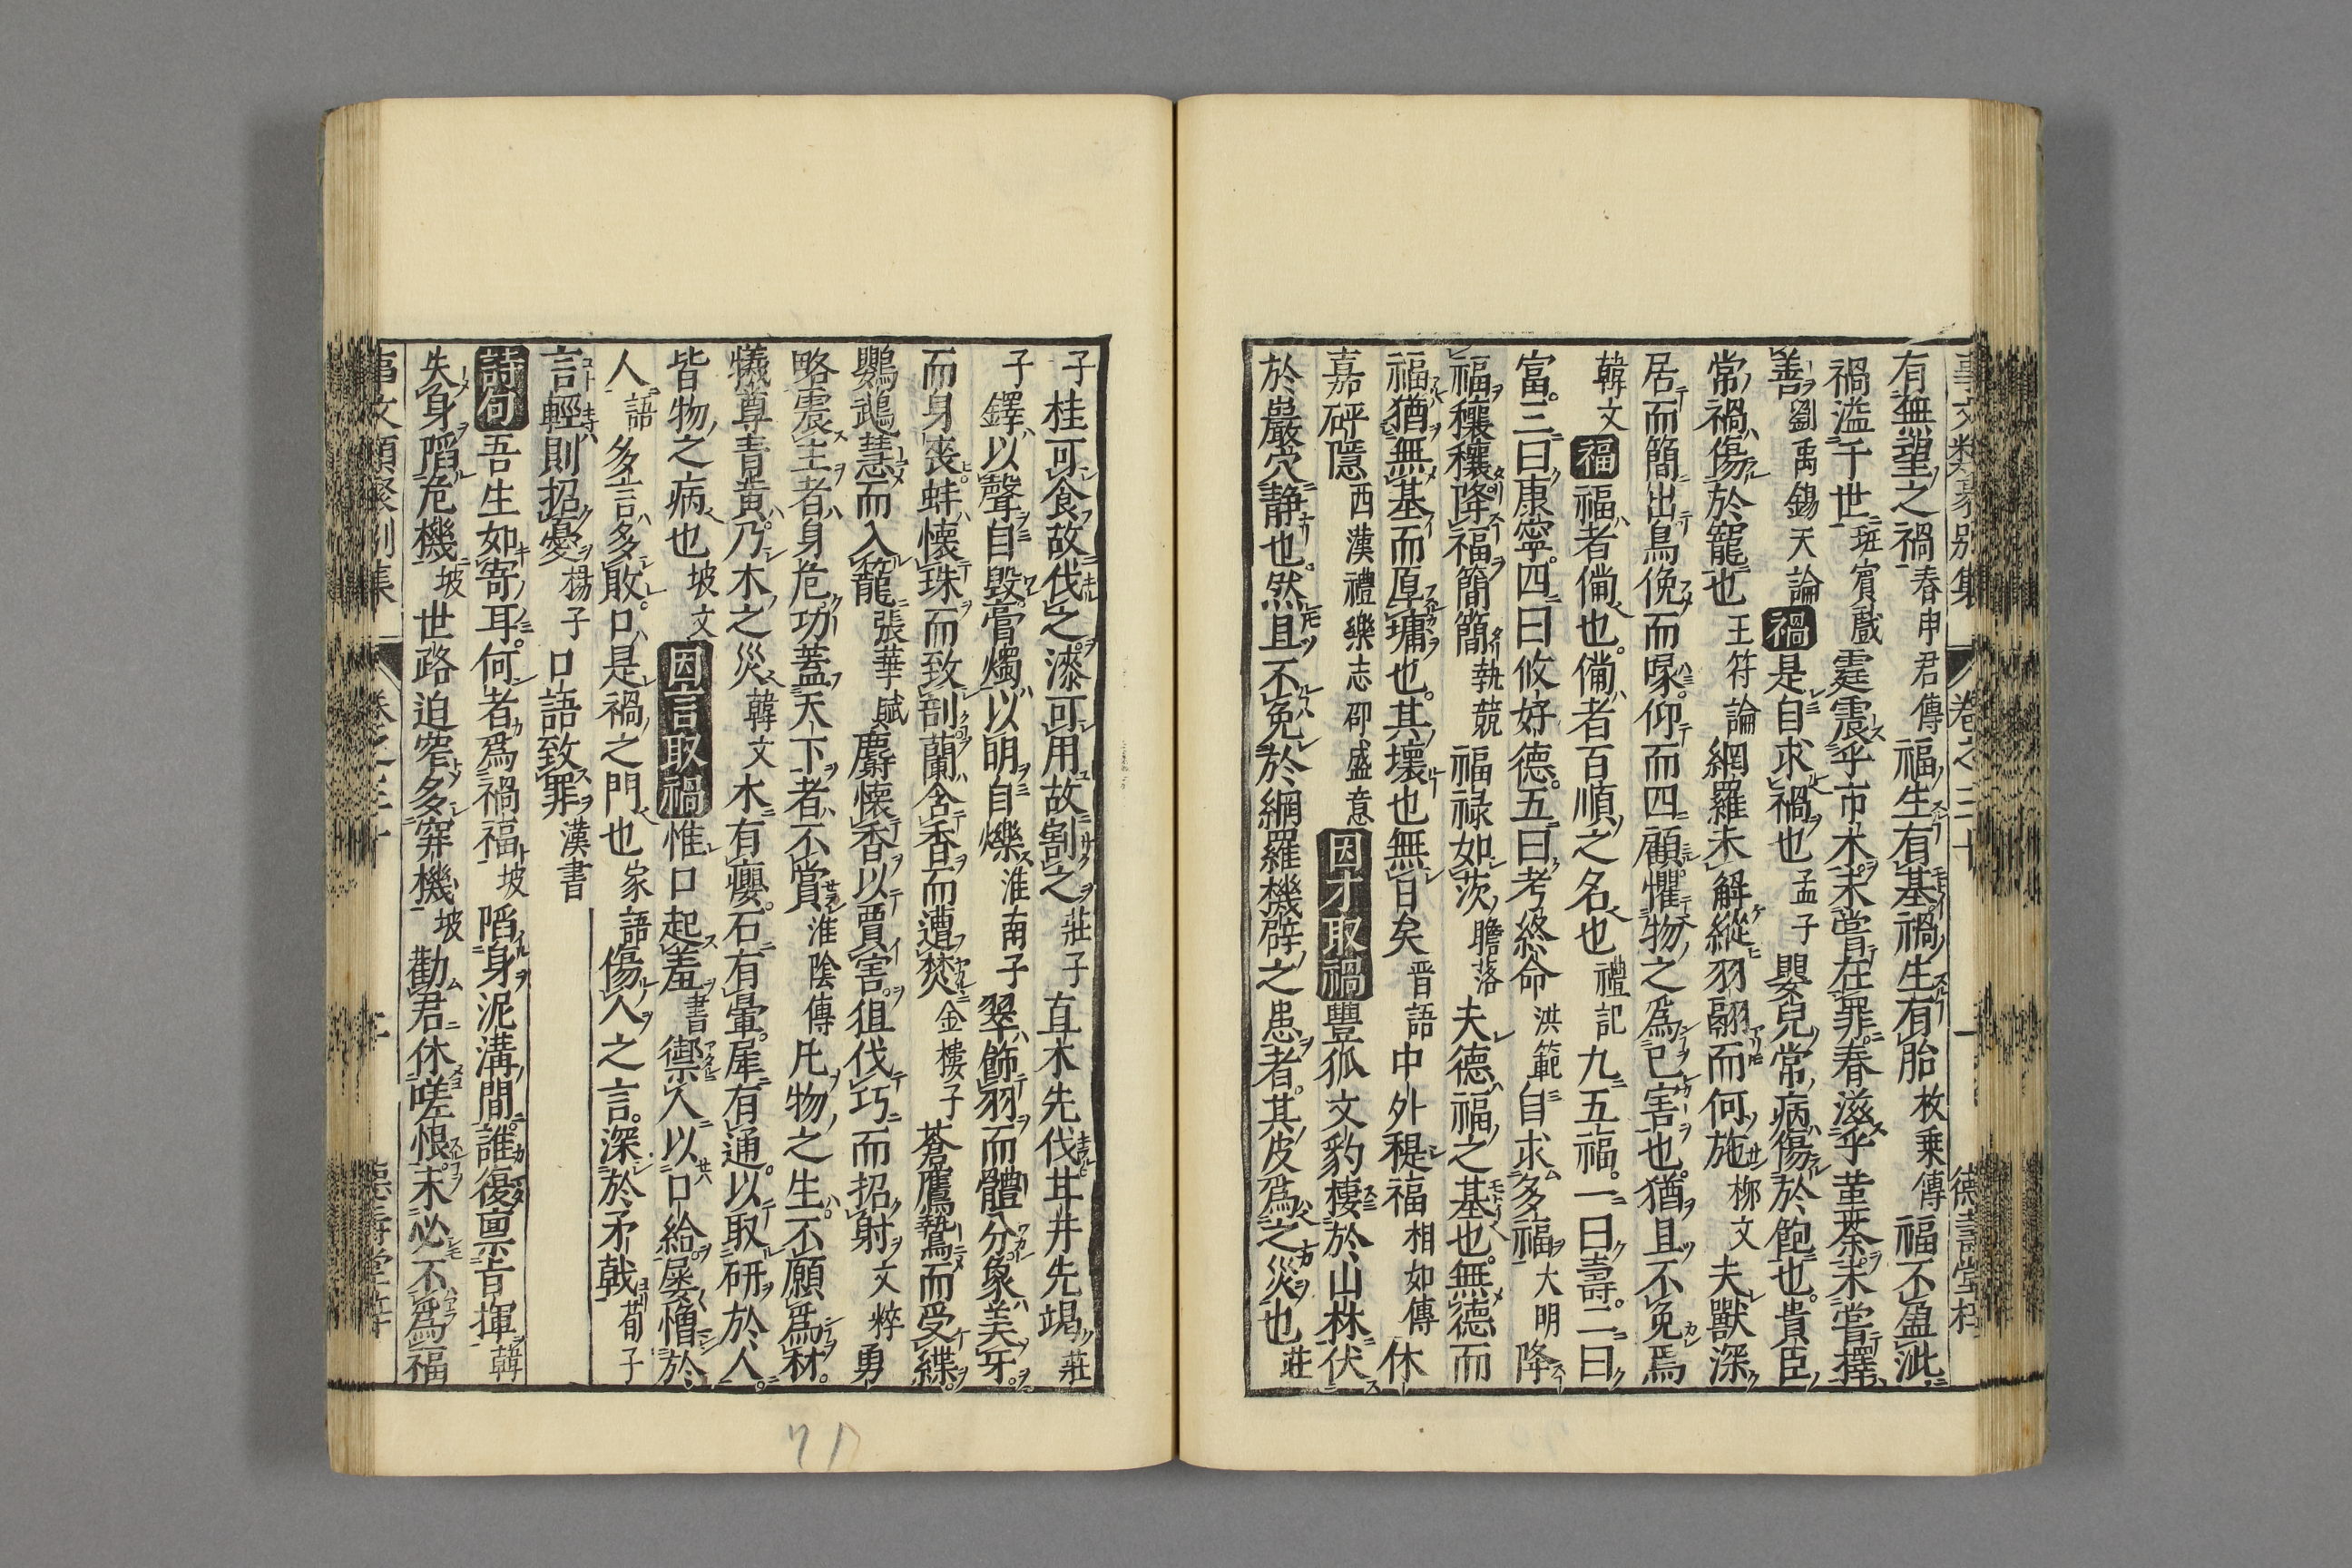 事文類聚別集 卷之三十 一 德壽堂梓
有無望之禍春申君傳福生有基禍生有胎枚乗傳福不盈泚
禍溢千世班賓戲霆震乎市木未嘗在罪春滋乎堇荼未嘗擇
善劉禹錫天論禍是自求禍也孟子嬰兒常病傷於飽也貴臣
常禍傷於寵也王符論網羅未解縱羽翮而何施栁文夫獸深
居而簡出鳥俛而喙仰而四顧懼物之爲己害也猶且不免焉
韓文福福者僃也僃者百順之名也禮記九五福一曰壽二曰
富三曰康寧四曰攸好德五曰考終命洪範自求多福大明降
福穰穰降福簡簡執競福禄如茨瞻落夫德福之基也無德而
福猶無基而厚墉也其壞也無日矣晋語中外禔福相如傳休
嘉砰隱西漢禮樂志卲盛意因才取禍豐狐文豹棲於山林伏
於巖穴静也然且不免於網羅機辟之患者其皮爲之災也莊
子桂可食故伐之漆可用故割之莊子直木先伐甘井先竭莊
子鐸以聲自毀膏燭以明自爍淮南子翠飾羽而體分象美牙
而身丧蚌懐珠而致剖蘭含香而遭焚金樓子蒼鷹鷙而受緤
鸚鵡慧而入籠張華賦麝懐香以賈害狙伐巧而招射文粹勇
略震主者身危功蓋天下者不賞淮陰傳凡物之生不願爲材
犧尊青黄乃木之災韓文木有癭石有暈犀有通以取研於人
皆物之病也坡文因言取禍惟口起羞書禦人以口給屡憎於
人語多言多敗口是禍之門也家語傷人之言深於矛戟荀子
言輕則招憂楊子口語致罪漢書
詩句吾生如寄耳何者爲禍福坡陷身泥溝間誰復稟㫖揮韓
失身陷危機坡世路迫窄多穽機坡勸君休嗟恨未必不爲福
事文類聚別集 卷之三十 二 德壽堂梓
71